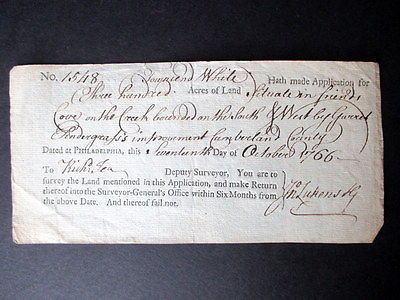 No. 1548 Townsend White Hath made Application for
Three hundred Acres of Land Situate in friends
Cove on the Creek bounded on the South & West by Garret
Pendergrass's improvement Cumberland County
Dated at PHILADELPHIA, this Seventeenth Day of October 1766
To Richd. Deputy Surveyor, You are to
survey the Land mentioned in this Application, and make Return
thereof into the Surveyor-General's Office within Six Months from
the above Date. And thereof fail not.
Jno. Lukens SG